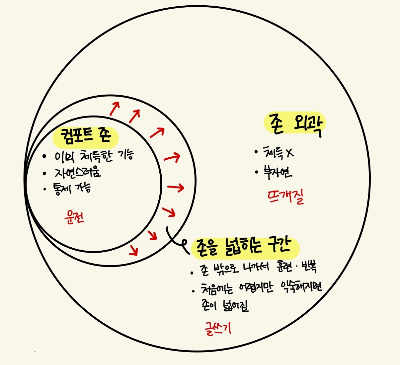 컴포트 존
• 이미 체득한 기능
• 자연스러움
• 통제 가능
운전
존 외곽
• 체득 X
• 부자연
뜨개질
존을 넓히는 구간
• 존 밖으로 나가서 훈련 · 반복
• 처음에는 어렵지만 익숙해지면
존이 넓어짐
글쓰기